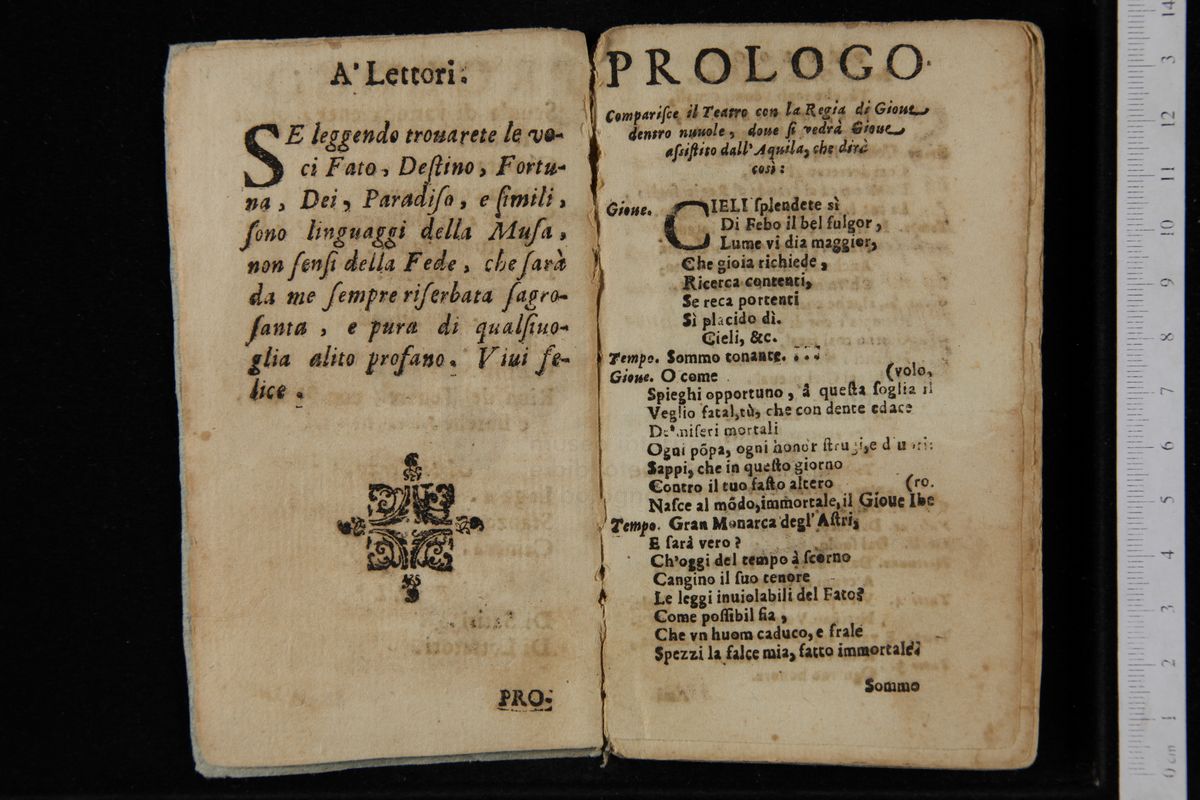 A' Lettori.
SE leggendo trouarete le vo-
ci Fato, Destino, Fortu-
na, Dei, Paradiso, e simili,
sono linguaggi della Musa,
non sensi della Fede, che sarà
da me sempre riserbata sagro-
santa, e pura di qualsiuo-
glia alito profano. Viui fe-
lice.
PRO-
PROLOGO.
Comparisce il Teatro con la Regia di Gioue
dentro nuuole, doue si vedrà Gioue
assistito dall'Aquila, che dirà
così:
Gioue. CIELI splendete sì
Di Febo il bel fulgor,
Lume vi dia maggior,
Che gioia richiede,
Ricerca contenti,
Se reca portenti
Sì placido dì.
Cieli, &c.
Tempo. Sommo tonante. . . .
Gioue. O come (volo,
Spieghi opportuno, à questa soglia il
Veglio fatal, tù, che con dente edace
De' miseri mortali
Ogni põpa, ogni honor strugi, e
Sappi, che in questo giorno
Contro il tuo fasto altero (ro.
Nasce al mõdo, immortale, il Gioue Ibe
Tempo. Gran Monarca degl'Astri,
E sarà vero?
Ch'oggi del tempo à scorno
Cangino il suo tenore
Le leggi inuiolabili del Fato?
Come possibil sia,
Che vn huom caduco, e frale
Spezzi la falce mia, fatto immortale?
Sommo
0 cm 1 2 3 4 5 6 7 8 9 10 11 12 3 14